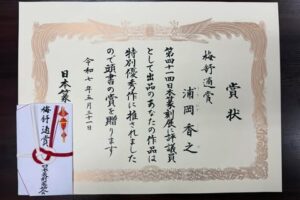 賞状
梅舒適賞
浦岡香之
第四十一回日本篆刻展に評議員
として出品のあなたの作品は
特別優秀作に推されました
ので頭書の賞を贈ります
令和七年五月三十一日
日本篆
梅舒適賞